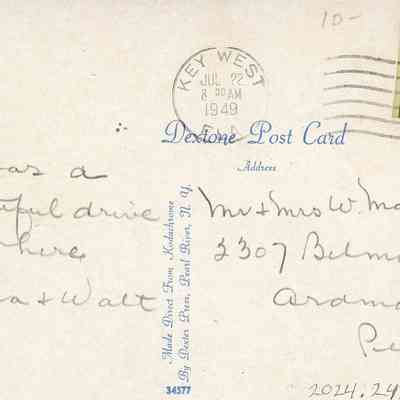 10-
KEY WEST
JUL 22
8 30 AM
1949
FLA.
Dextone Post Card
Address
as a
ful drive
here
a & Walt
Made Direct From Kodachrome
By Dexter Press, Pearl River, N. Y.
34577
Mr & Mrs W. Ma
3307 Belm
Ardm
Pe
2024.24